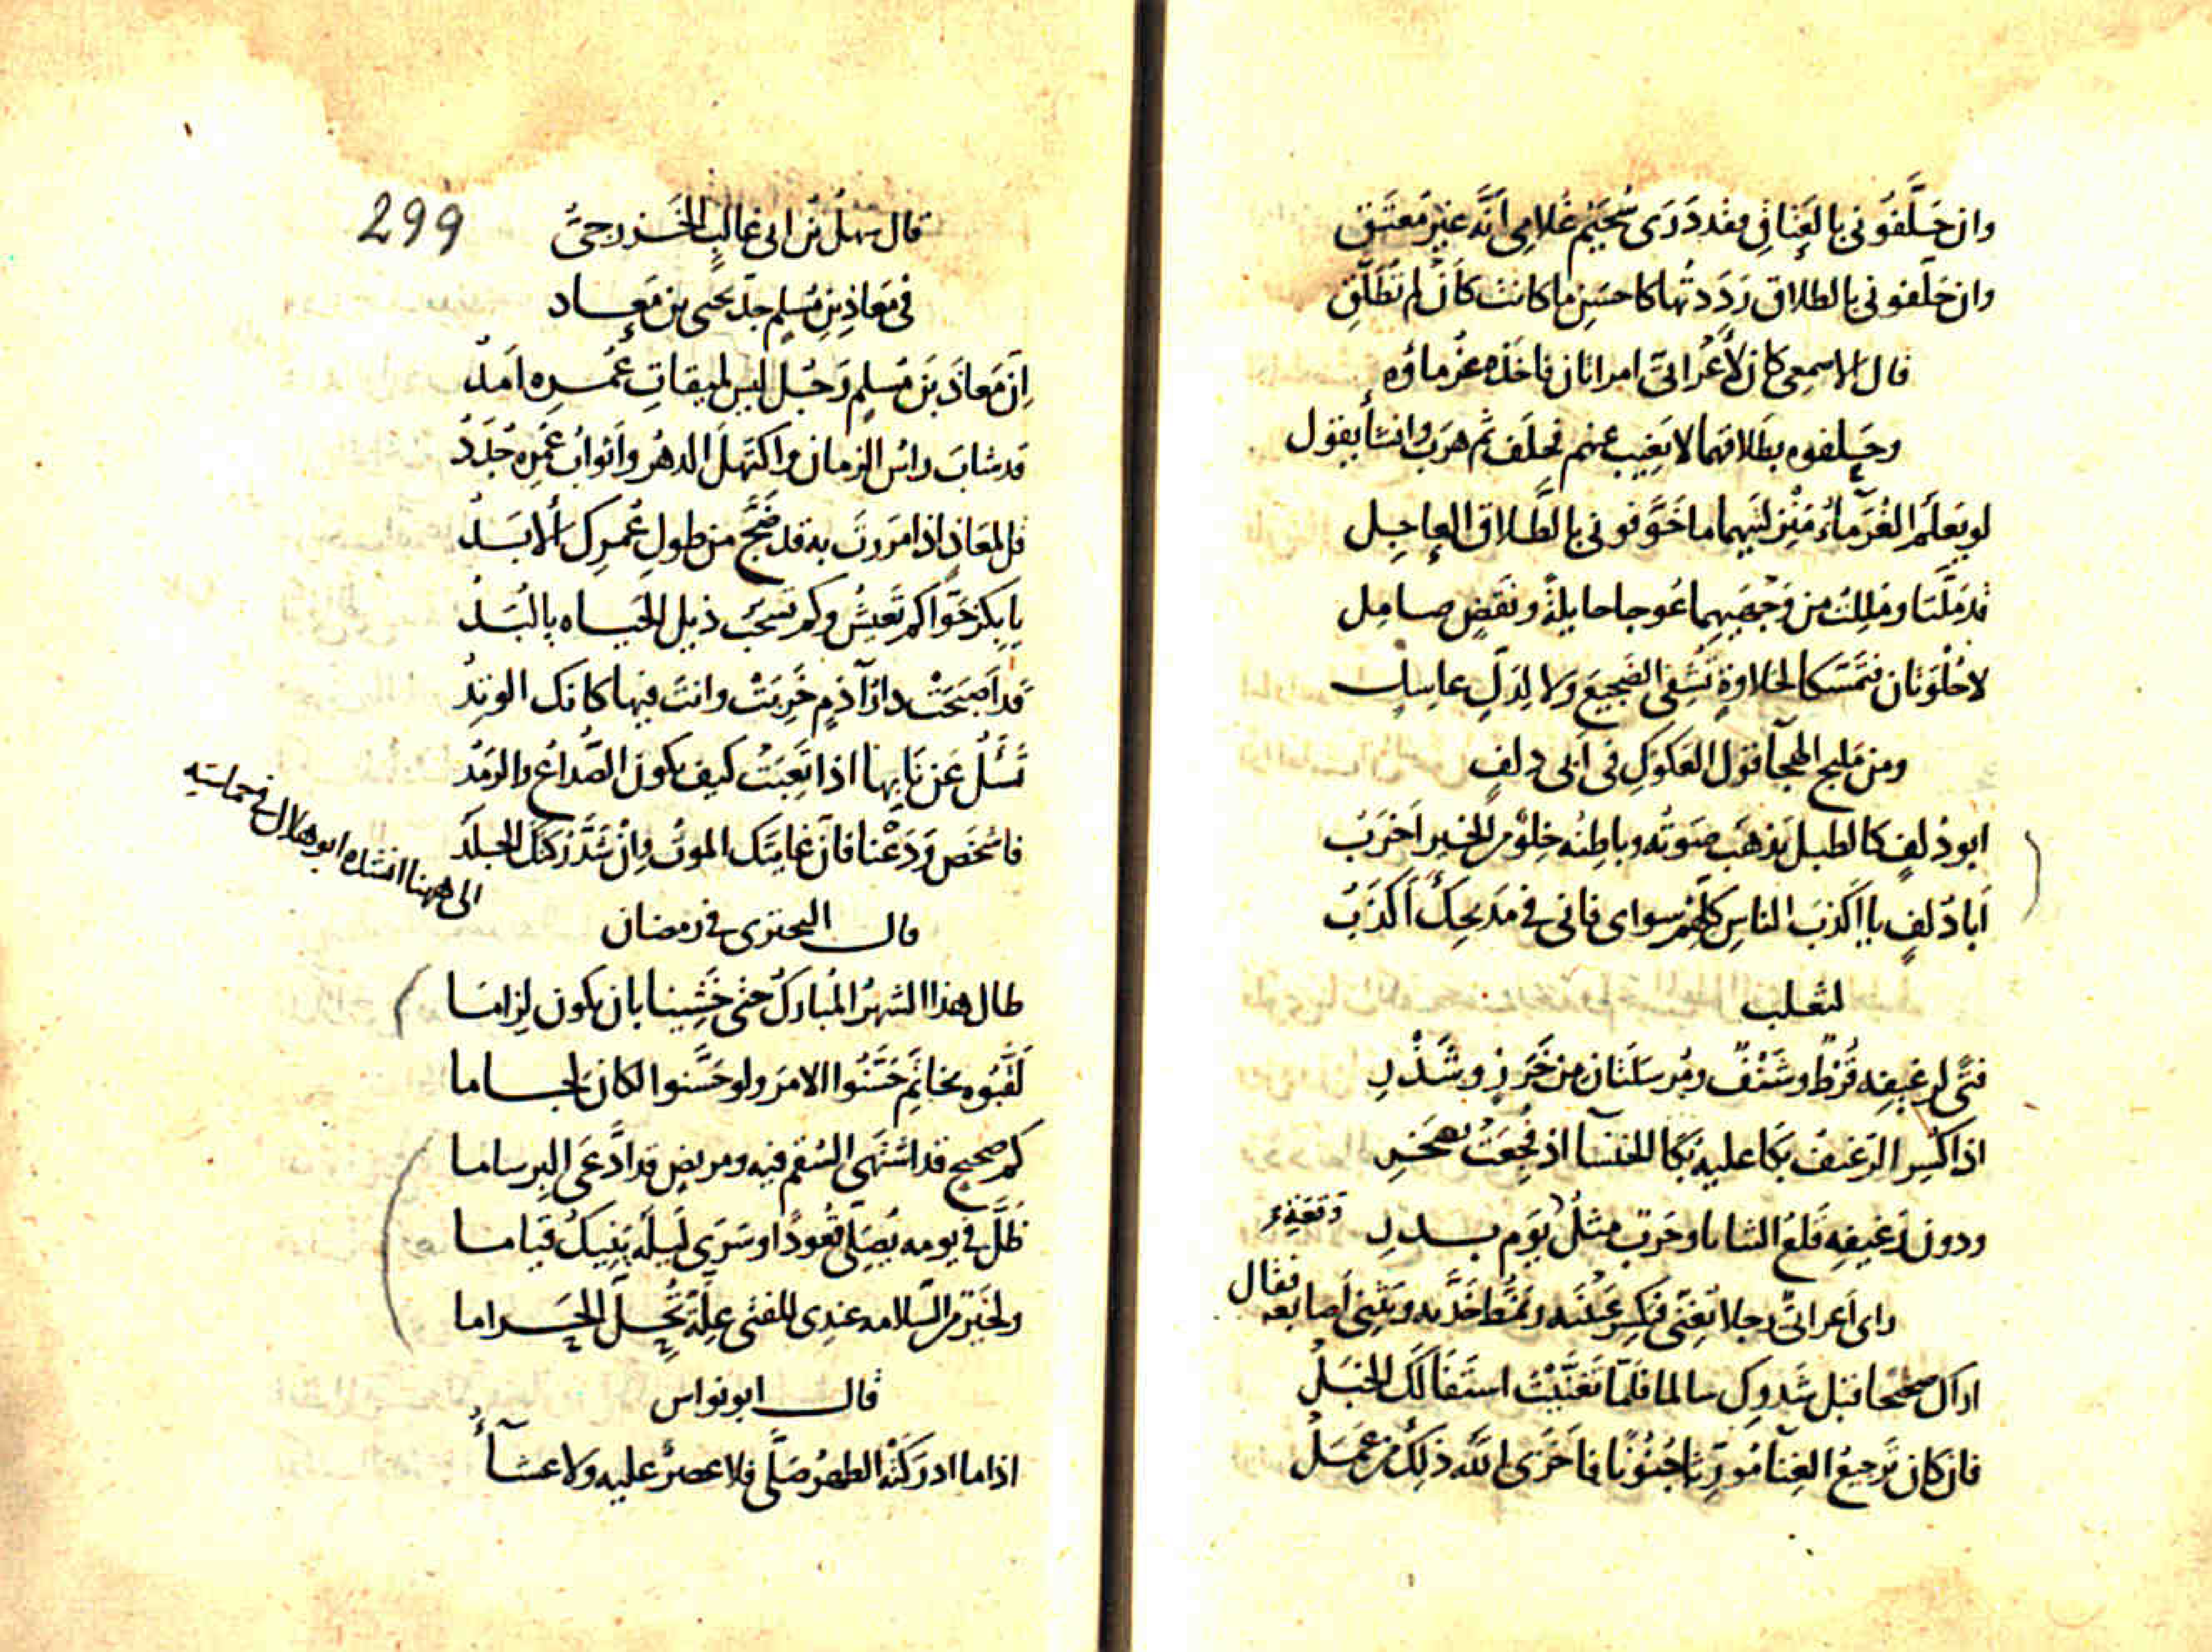 وان حَلَّفُونى بالعِتاقِ فقد دَرَى سُحَيْم غُلامِى اَنَّه غيرُ مُعتَقِ
وان حَلَّفونى بالطلاق رَدَدتُها كاحسَنِ ما كانت كَاَنْ لم تُطَلَّقِ
قال الاصمعى كان لأَعْرابىّ امراتان فاخَذه غُرماؤه
وحَلفوه بطَلاقهما لا يَغيب عنهم فحلَف ثم هرَب وانشأ يقول
لو يَعلَمُ الغُرَماءُ مَنْزِلتَيهما ما خَوَّفونى بالطَّلاق العاجِل
قد مَلَّتا ومَلِلتُ من وَجهَيهِما
لا حُلْوَتان فتُمْسَكا لحَلاوةٍ تُشفى الضَجيعَ ولا لِدَلٍ عاسل
ومن مَليح الهجآ قول العَكوَّكِ فى اَبى دلفٍ
ابو دُلفٍ كالطبل يَذهَب صَوتُه وباطِنُه خِلْوٌ من الخير اَخرَبُ
اَبا دُلفٍ يا اَكذبَ الناسِ كلّهم سواى فانى فى مَديحِكَ اَكذَبُ
لثعلب
فتًى لرغيفِه قُرْطٌ وشَنْفٌ ومُرسَلَتان من خَرَزٍ وشَذْرِ
اذا كُسِر الرَغيفُ بَكا عليه بُكَا الخنسآ اذ فُجِعَتْ بصَخرِ
ودون رَغيفِه قَلعُ الثنايا وحَربٌ مثلُ يَوم بدرِ
راى اَعرابىّ رجلا يُغنّى
فقال
اراك صحيحا قبل شَدوِك سالما فلَمّا تَغَنَّيْتَ استَفَالَكَ الخبَلُ
فان كان تَرجيعُ الغِنآ مُورِثا جُنُونًا فاَخزَى اللَّه ذلِكَ من عَمَلْ
299
قال سهلُ بْن ابى غالبٍ الخَزرجىُّ
فى مَعاذِ بنِ مُسلِمٍ جدّ يحيى بن مَعاد
اِنّ مَعاذَ بنَ مُسلِمٍ رَجُل ليس لميقاتِ عُمرِه اَمَدُ
قد شابَ راسُ الزمان واكتَهلَ الدهرُ واَثوابُ عُمرِه جُدَدُ
قل لمَعاذٍ اذا مَرَرتَ به قد ضَجَّ من طولِ عُمرِكَ الأبَدُ
يا بِكرَ حَوّا كم تَعيشُ وكم تَسحَب ذيل الحَياه يا لُبَدُ
قد اَصبَحَتْ دارُ آدمٍ خَرِبَتْ وانتَ فيها كانك الوتِدُ
تَسئلُ عَن اذا تَعِبَتْ كيف يكون الصُّداعُ والرمَدُ
فاشخَص ودَعْنا فانّ غايتَك الموتُ وانْ شَدَّ رُكنَكَ الجلَدُ
الى ههنا انشده ابو هلال فى حماسته
قال البحترى فى رمضان
طال هذا الشهرُ المُبارَكُ حتى خَشِينا بان يكون لِزاما
لَقَّبُوه بخاتَمٍ حَسَّنُوا الامرَ ولو حَسَّنوا لكانَ لجاما
كم صحيحٍ قد اشتَهَى السُقمَ فيه ومريضٍ قد ادَّعَى البِرساما
ظَلَّ فى يومه يُصَلّى قُعُودًا وسَرَى لَيلَه يَنِيكُ قياما
ولخَيْر من السَّلامه عندِى للفتى عِلّةٌ تُحِلُّ الحَراما
قال ابو نواس
اذا ما ادرَكَتْه الظهرُ صَلَّى فلا عصرٌ عليه ولا عشآءُ